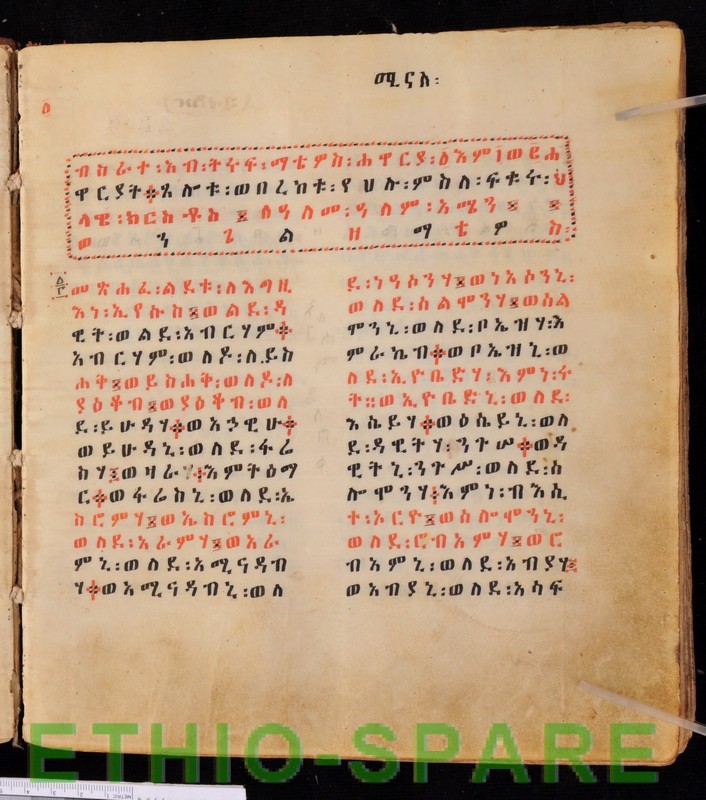 ሚናስ፡
ብስራተ፡አብ፡ትሩፍ፡ማቴዎስ፡ሐዋርያ፡፩እም፲ወ፪ሐ
ዋርያት፡ጸሎቱ፡ወበረከቱ፡የሀሉ፡ምስለ፡ፍቁሩ፡
ለዓለመ፡ዓለም፡አሜን፨
ወንጌል ዘማቴዎስ
መጽሐፈ፡ልደቱ፡ለእግዚ
እነ፡ኢየሱስ፨ወልደ፡ዳ
ዊት፡ወልደ፡አብርሃም፨
አብርሃም፡ወለዶ፡ለይስ
ሐቅ፨ወይስሐቅ፡ወለዶ፡ለ
ያዕቆብ፨ወያዕቆብ፡ወለ
ደ፡ይሁዳሃ፨ወአኃዊሁ፨
ወይሁዳኒ፡ወለደ፡ፋሬ
ስሃ፨ወዛራሃ፡እምትዕማ
ር፨ወፋሬስኒ፡ወለደ፡ኤ
ስሮምሃ፨ወኤስሮምኒ፡
ወለደ፡አራምሃ፨ወአራ
ምኒ፡ወለደ፡አሚናዳብ
ሃ፨ወአሚናዳብኒ፡ወለ
ደ፡ነዓሶንሃ፨ወነአሶንኒ፡
ወለደ፡ሰልሞንሃ፨ወሰል
ሞንኒ፡ወለደ፡ቦኤዝሃ፡እ
ምራኬብ፨ወቦኤዝኒ፡ወ
ለደ፡ኢዮቤድሃ፡እምነ፡ሩ
ት፡፡ወኢዮቤድኒ፡ወለደ፡
እሴይሃ፨ወዕሴይኒ፡ወለ
ደ፡ዳዊትሃ፡ንጉሠ፨ወዳ
ዊትኒ፡ንጉሥ፡ወለደ፡ሰ
ሎሞንሃ፡እምነ፡ብእሲ
ተ፡ኦርዮ፨ወሰሎሞንኒ፡
ወለደ፡ሮብአምሃ፨ወሮ
ብአምኒ፡ወለደ፡አብያሃ፨
ወአብያኒ፡ወለደ፡አሳፍ
ETHIO-SPARE